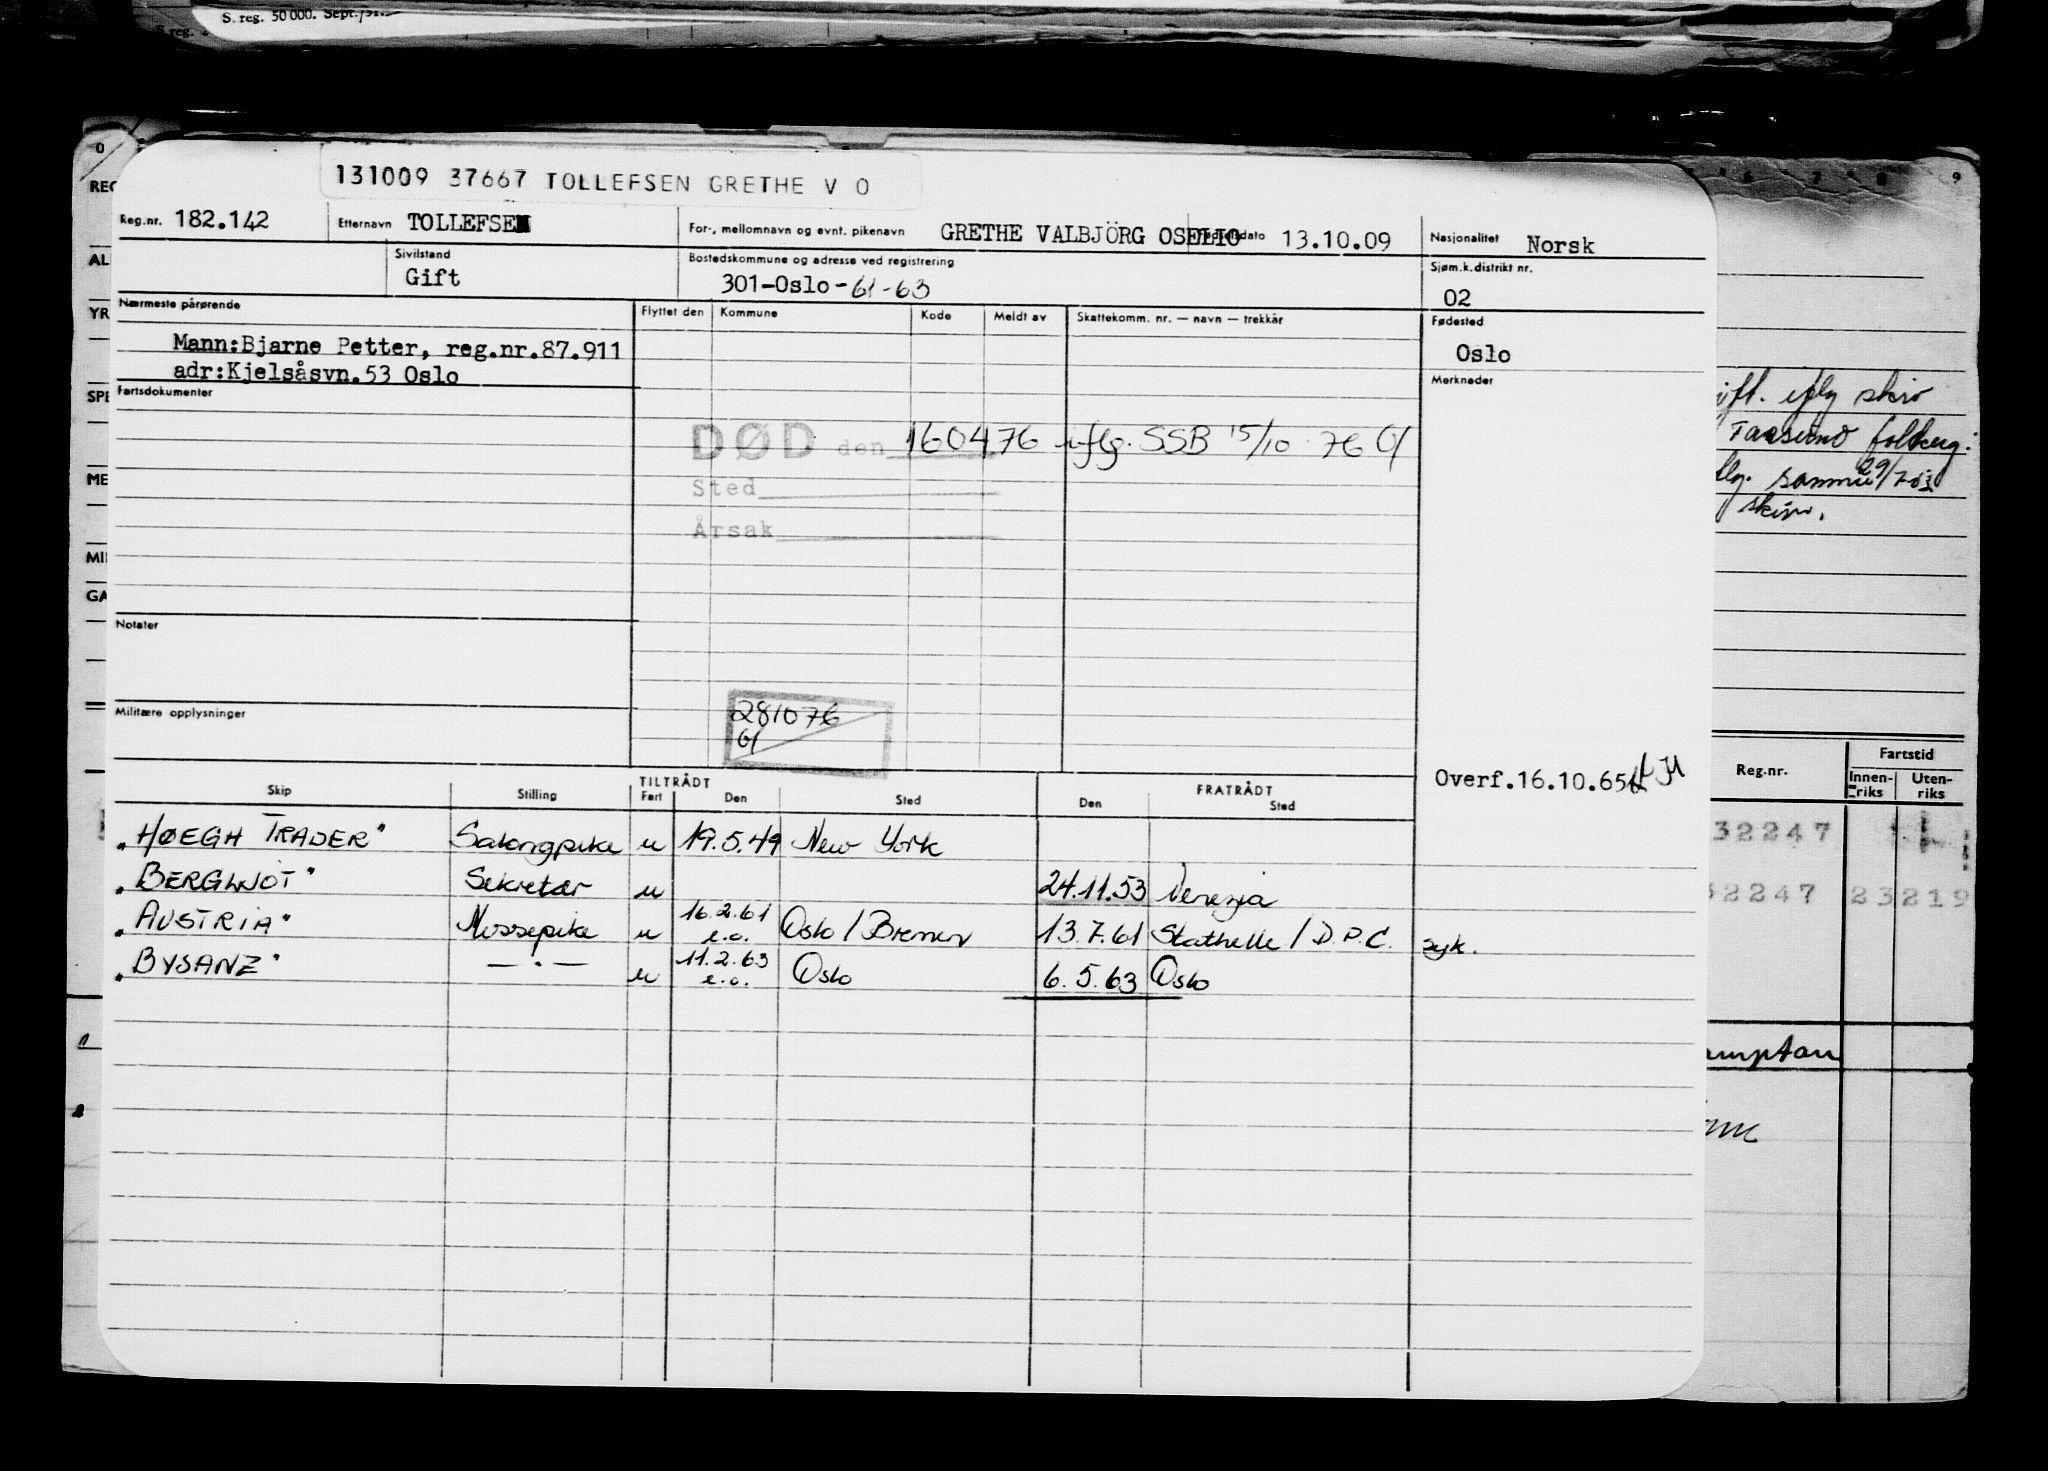 S. reg. 50 000. Sept./51.
S reg.
131009 37667 TOLLEFSEN GRETHE V O
Reg.nr. 182.142 Etternavn TOLLEFSEN For-, mellomnavn og evnt. pikenavn GRETHE VALBJÖRG OSELIO dato 13.10.09 Nasjonalitet Norsk
Sivilstand Gift Bostedskommune og adresse ved registrering 301-Oslo-61-63 Sjøm.k.distrikt nr. 02
Nærmeste pårørende Flyttet den Kommune Kode Meldt av Skattekomm. nr. — navn — trekkår Fødested Oslo
Mann:Bjarne Petter, reg.nr.87.911
adr:Kjelsåsvn.53 Oslo
Fartsdokumenter Merknader
DØD den 160476 iflg. SSB 15/10 76 GJ
Sted
Årsak
Notater
Militære opplysninger
281076
GJ
Overf.16.10.65
Skip Stilling TILTRÅDT Fart Den Sted FRATRÅDT Den Sted
"HØEGH TRADER" Salongpike u 19.5.49 New York
"BERGLJOT" Sekretær u 24.11.53 Venezia
"AUSTRIA" Messepike u 16.2.61 e.o. Oslo / Bremen 13.7.61 Stathelle / D.P.C. syk.
"BYSANZ" — · — u 11.2.63 e.o. Oslo 6.5.63 Oslo
0
REG
AL
YR
SPE
ME
MI
GA
1
2
6 7 8 9
ifl. iflg skiv
folkereg.
iflg. samme 29/7
skiv.
Reg.nr. Fartstid
Innen-riks Uten-riks
32247
32247 23219
ampton